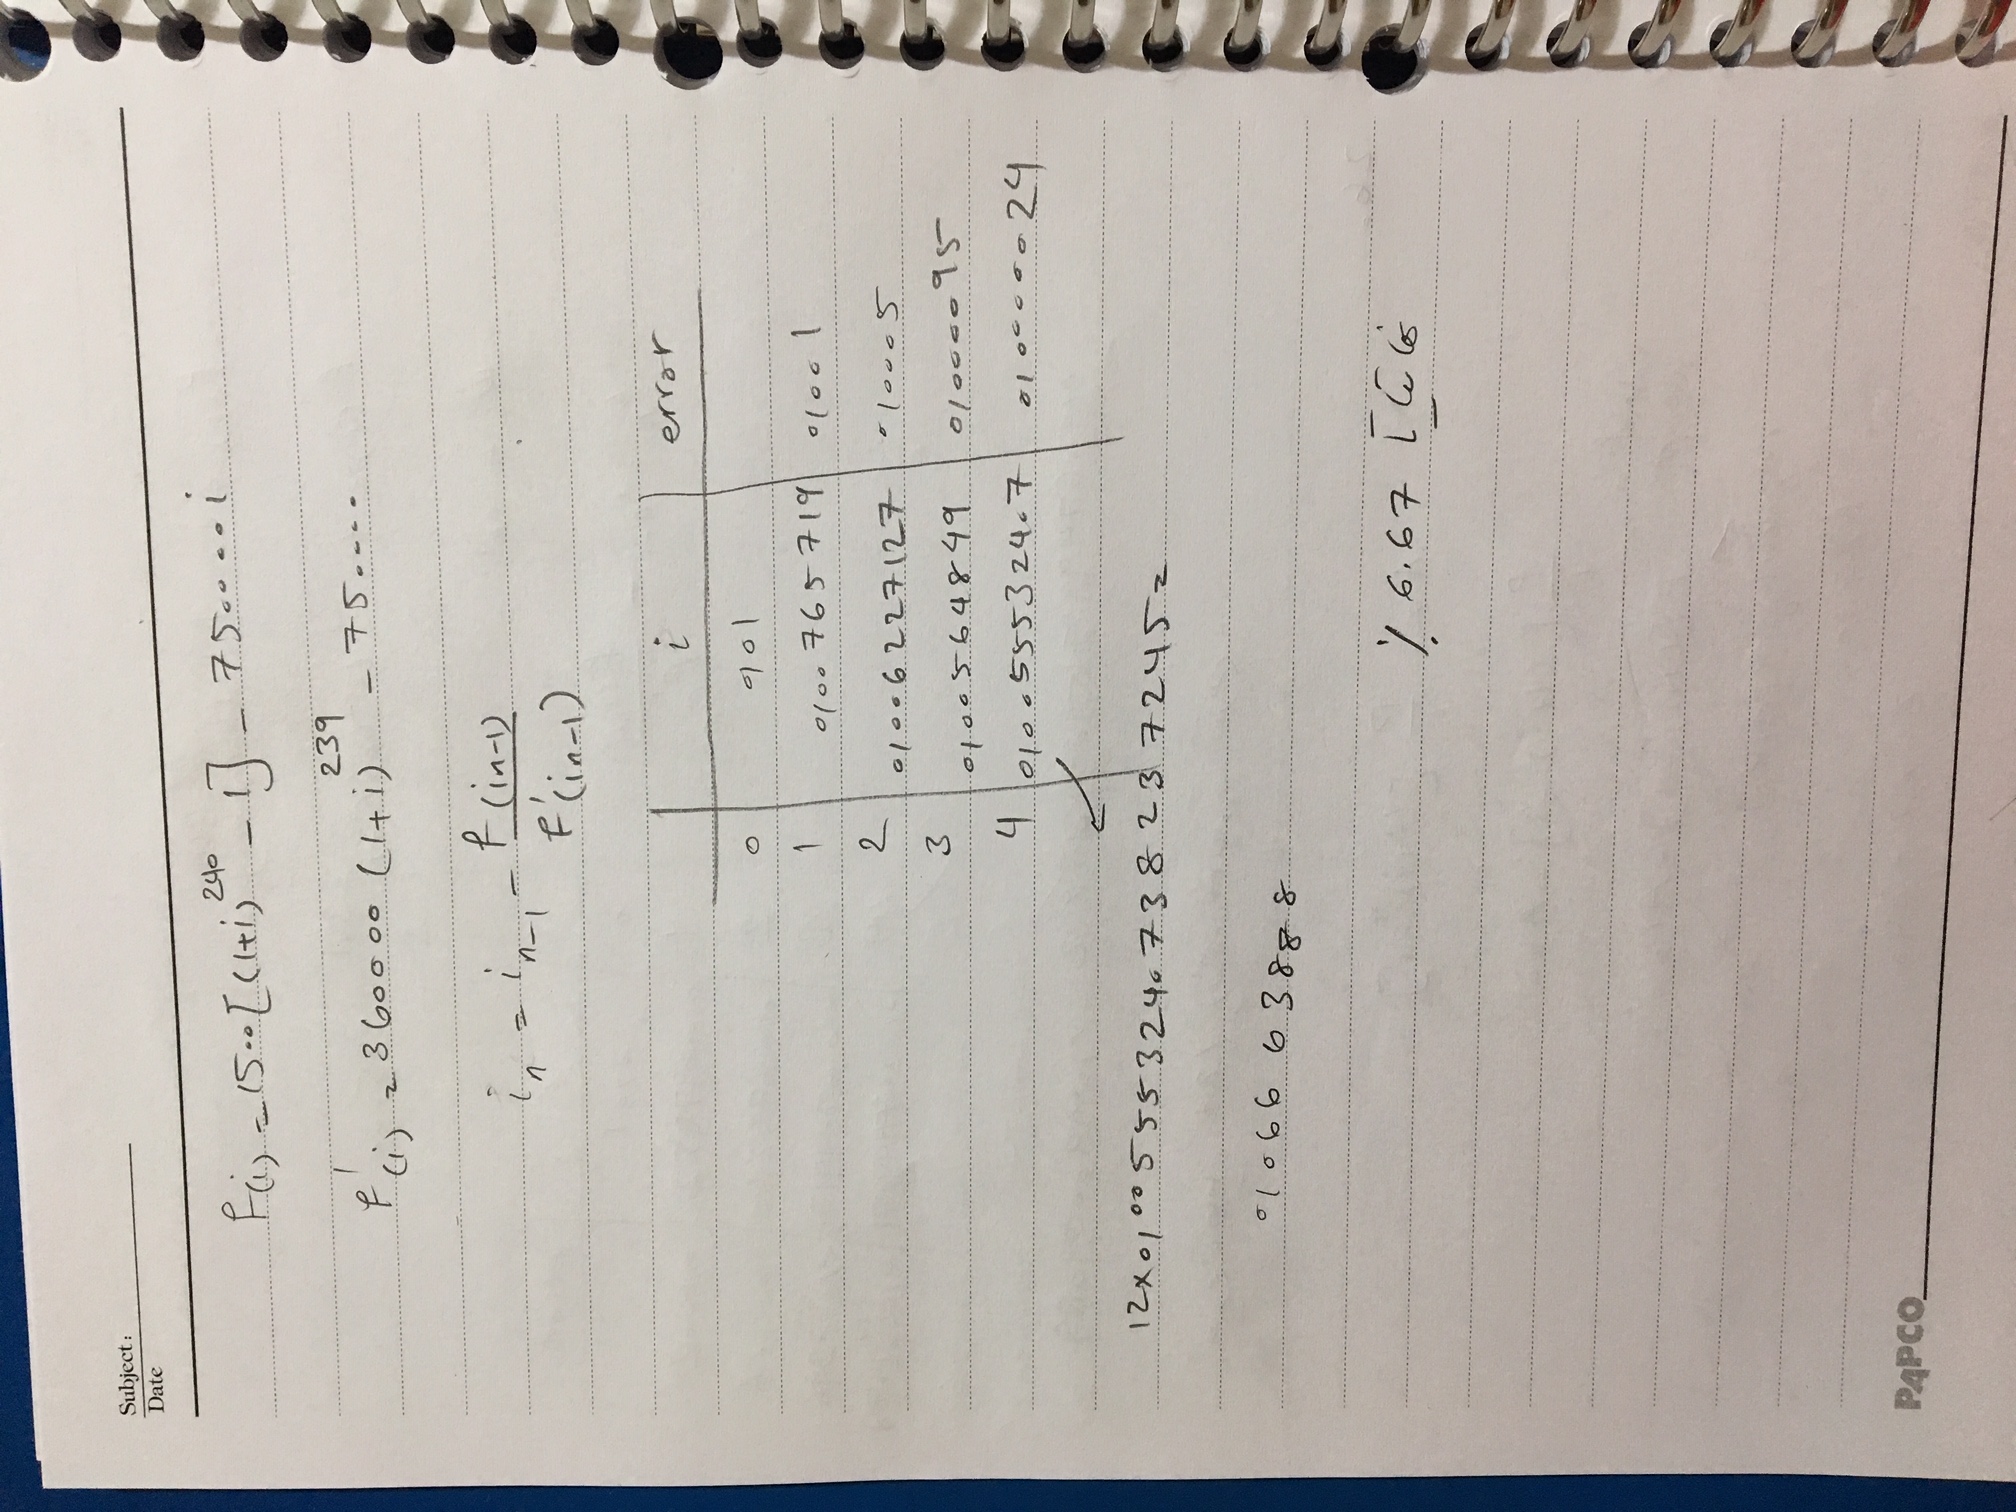 Subject:
Date
f(i) = 1500[(1+i)^240 - 1] - 750000i
f'(i) = 360000(1+i)^239 - 750000
i_n = i_n-1 - f(i_n-1) / f'(i_n-1)
i error
0 0,01
1 0,00765719 0,001
2 0,006227127 0,0005
3 0,00564849 0,000095
4 0,0055532407 0,0000024
12×0,005553240738237245=
0,066 63888
٪ 6.67
PAPCO